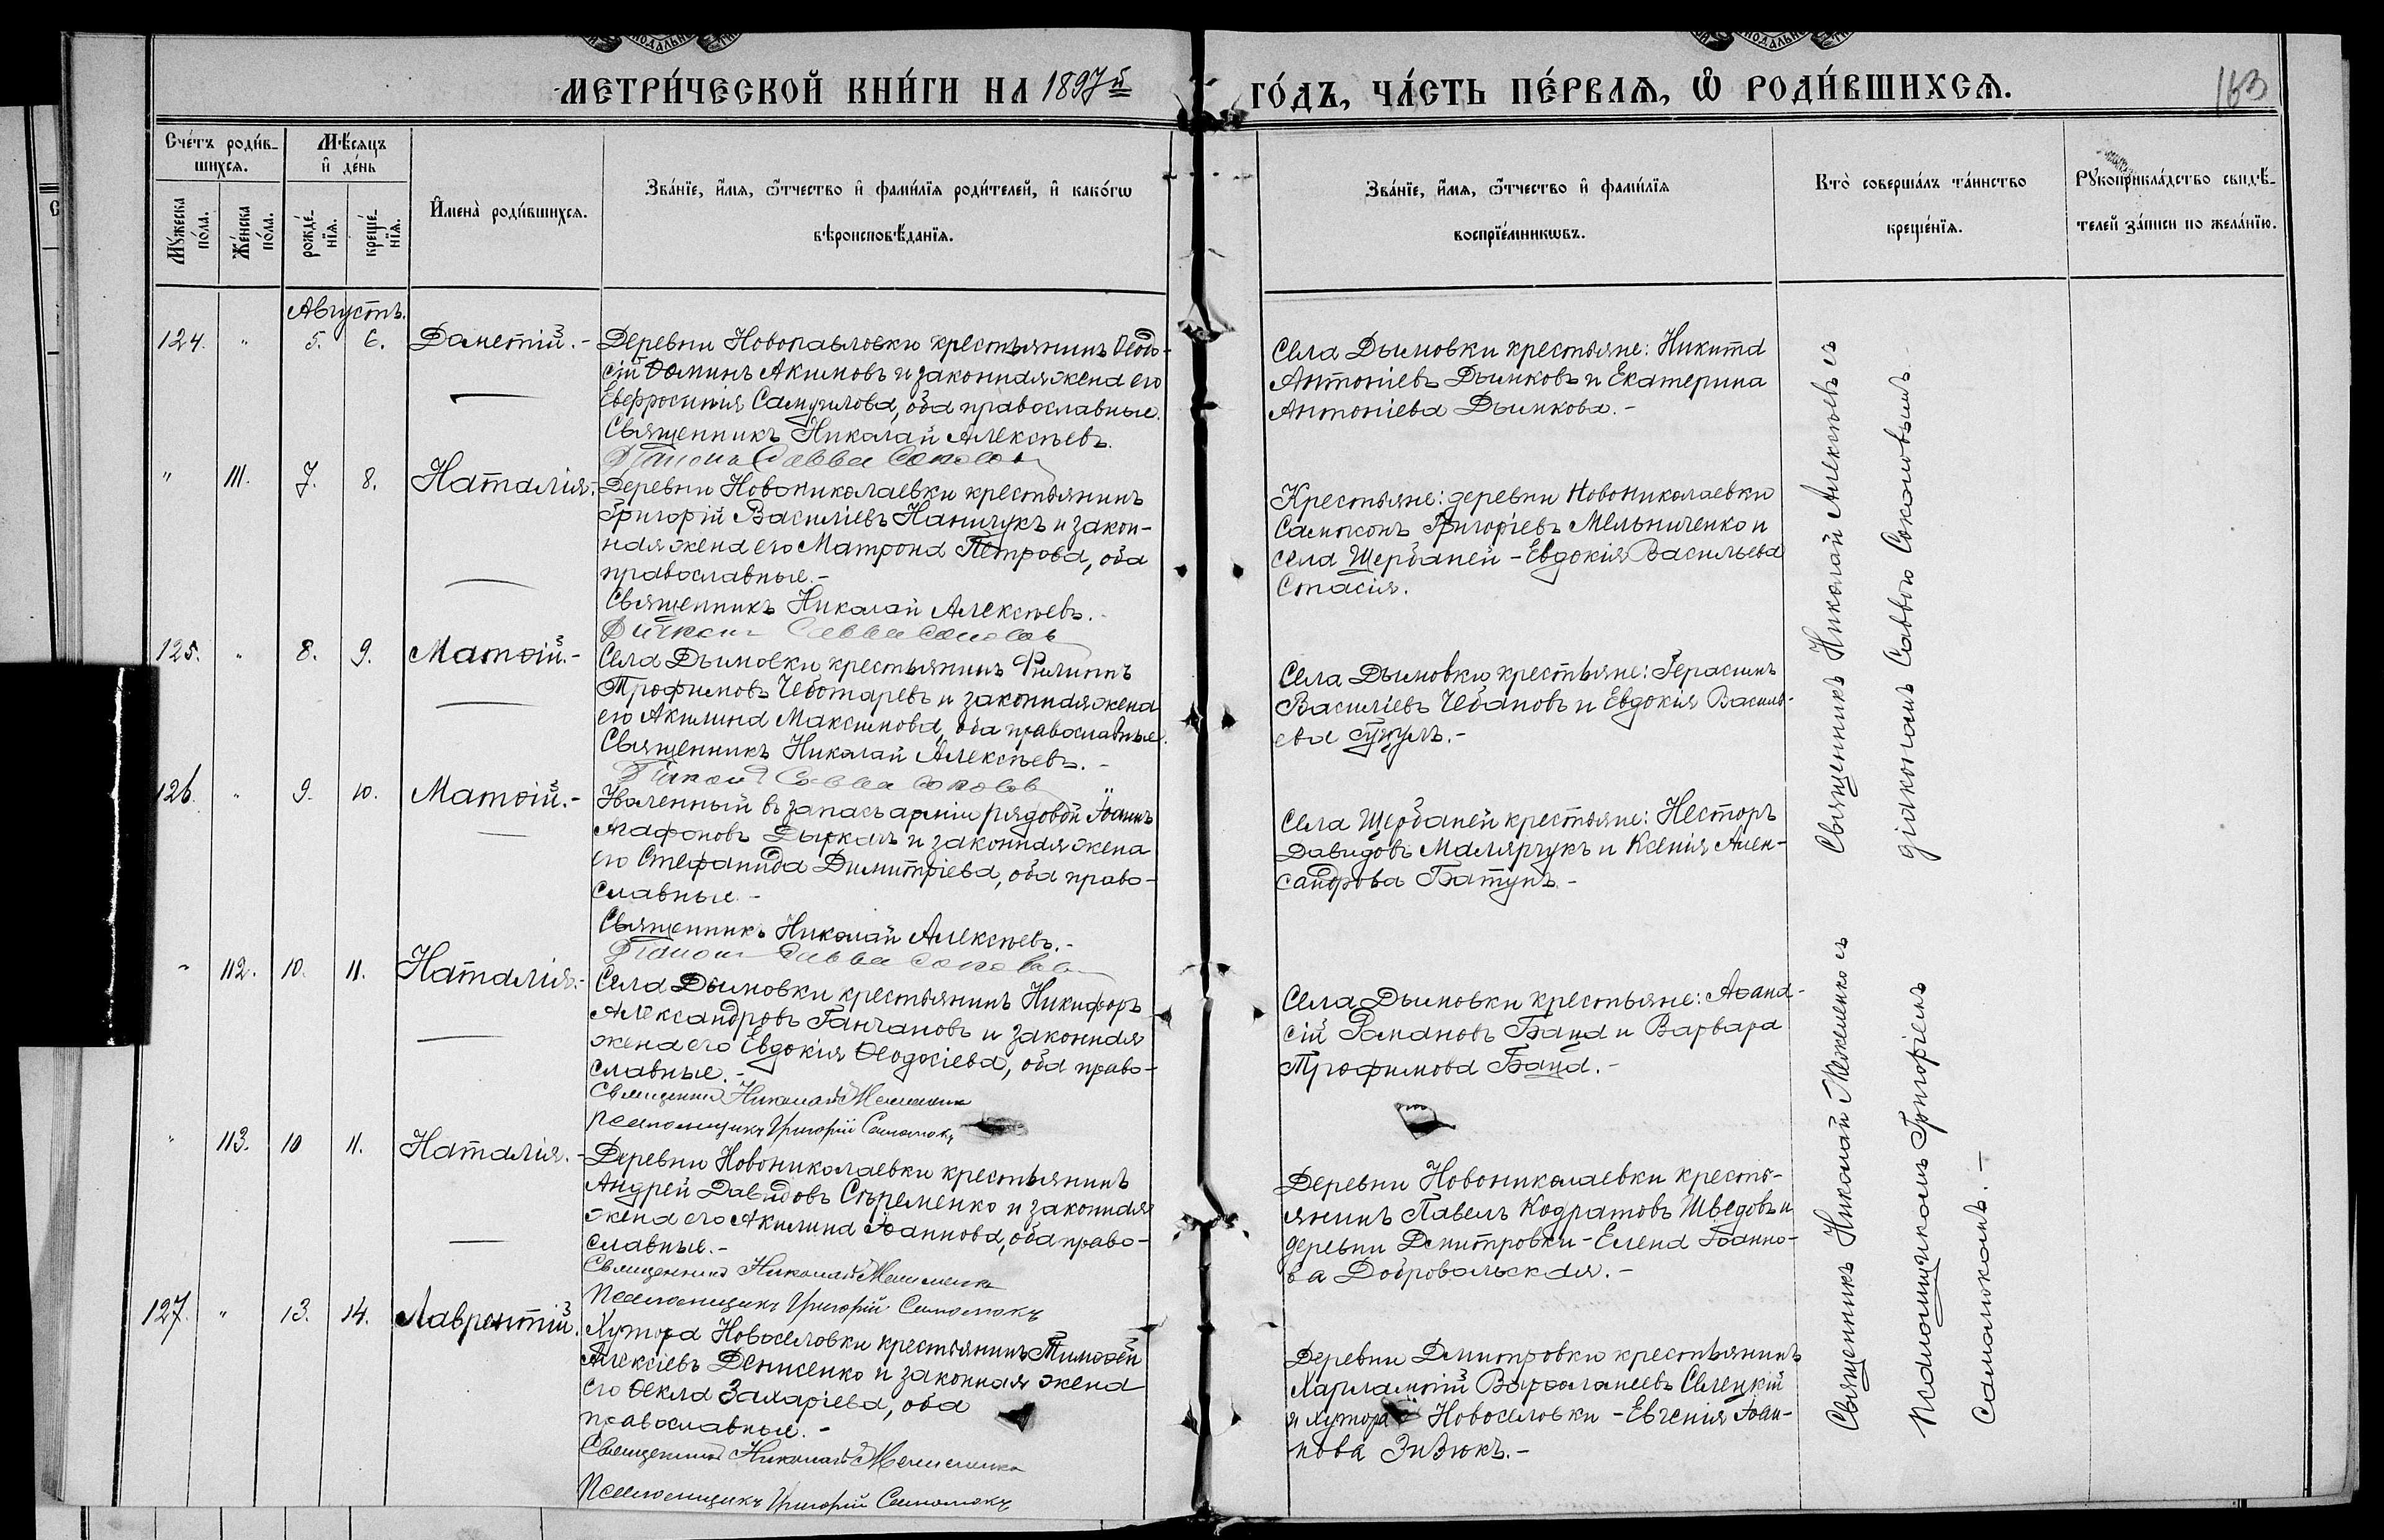 МЕТРИ́ЧЕСКОЙ КНИ́ГИ НА 1897й ГО́ДЪ, ЧА́СТЬ ПЕ́РВАѦ, Ѽ РОДИ́ВШИХСѦ.
163
Сче́тъ роди́в-
шихсѧ.
Мꙋ́жеска по́ла.
Же́нска по́ла.
Мѣ́сяцъ
и҆ де́нь
рожде́-
нїѧ.
креще́-
нїѧ.
И҆мена̀ роди́вшихсѧ.
Зва́нїе, и҆́мѧ, ѻ҆́тчество и҆ фами́лїѧ роди́телей, и҆ како́гѡ
вѣроисповѣ́данїѧ.
Зва́нїе, и҆́мѧ, ѻ҆́тчество и҆ фами́лїѧ
воспрїе́мникѡвъ.
Кто̀ соверша́лъ та́инство
креще́нїѧ.
Рꙋкоприкла́дство свидѣ́-
телей за́писи по жела́нїю.
Августъ.
124. " 5. 6. Даметій.-
Деревни Новопавловки крестьянинъ Ѳеодо-
сій Ѳоминъ Акимовъ и законная жена его
Евфросинія Самуилова, оба православные.
Священникъ Николай Алексѣевъ.
Діаконъ Савва Соколов
Села Дымовки крестьяне: Никита
Антоніевъ Дымковъ и Екатерина
Антоніева Дымкова.-
" 111. 7. 8. Наталія.-
Деревни Новониколаевки крестьянинъ
Григорій Василіевъ Наничукъ и закон-
ная жена его Матрона Петрова, оба
православные.-
Священникъ Николай Алексѣевъ.-
Діаконъ Савва Соколов
Крестьяне: деревни Новониколаевки
Самсонъ Григоріевъ Мельниченко и
села Щербаней - Евдокія Васильева
Стасія.
125. " 8. 9. Матѳій.-
Села Дымовки крестьянинъ Филиппъ
Трофимовъ Чеботаревъ и законная жена
его Акилина Максимова, оба православные.
Священникъ Николай Алексѣевъ.-
Діаконъ Савва Соколов
Села Дымовки крестьяне: Герасимъ
Василіевъ Чебановъ и Евдокія Василь-
ева
126. " 9. 10. Матѳій.-
Уволенный въ запасъ арміи рядовой Іоаннъ
Агафоновъ Дыркачъ и законная жена
его Стефанида Димитріева, оба право-
славные.-
Священникъ Николай Алексѣевъ.-
Діаконъ Савва Соколов
Села Щербаней крестьяне: Несторъ
Давидовъ Малярчукъ и Ксенія Алек-
сандрова Батунъ.-
" 112. 10. 11. Наталія.-
Села Дымовки крестьянинъ Никифоръ
Александровъ Ганчановъ и законная
жена его Евдокія Ѳеодосіева, оба право-
славные.-
Священникъ Николай
Псаломщикъ Григорій Самолюкъ
Села Дымовки крестьяне: Аѳана-
сій Романовъ Баца и Варвара
Трофимова Баца.-
" 113. 10 11. Наталія.-
Деревни Новониколаевки крестьянинъ
Андрей Давидовъ Стременко и законная
жена его Акилина Іоаннова, оба право-
славные.-
Священникъ Николай
Псаломщикъ Григорій Самолюкъ
Деревни Новониколаевки кресть-
янинъ Павелъ Кодратовъ Шведовъ и
деревни Дмитровки - Елена Іоанно-
ва Добровольская.-
127. " 13. 14. Лаврентій.
Хутора Новоселовки крестьянинъ Тимоѳей
Алексіевъ Денисенко и законная жена
его Ѳекла Захаріева, оба
православные.-
Священникъ Николай
Псаломщикъ Григорій Самолюкъ
Деревни Дмитровки крестьянинъ
Харлампій Варѳоломеевъ Селецкій
и хутора Новоселовки - Евгенія Іоан-
нова Зивюкъ.-
Священникъ Николай Алексѣевъ съ
діакономъ Саввою Соколовымъ
Священникъ Николай съ
псаломщикомъ Григоріемъ
Самолюкомъ.-